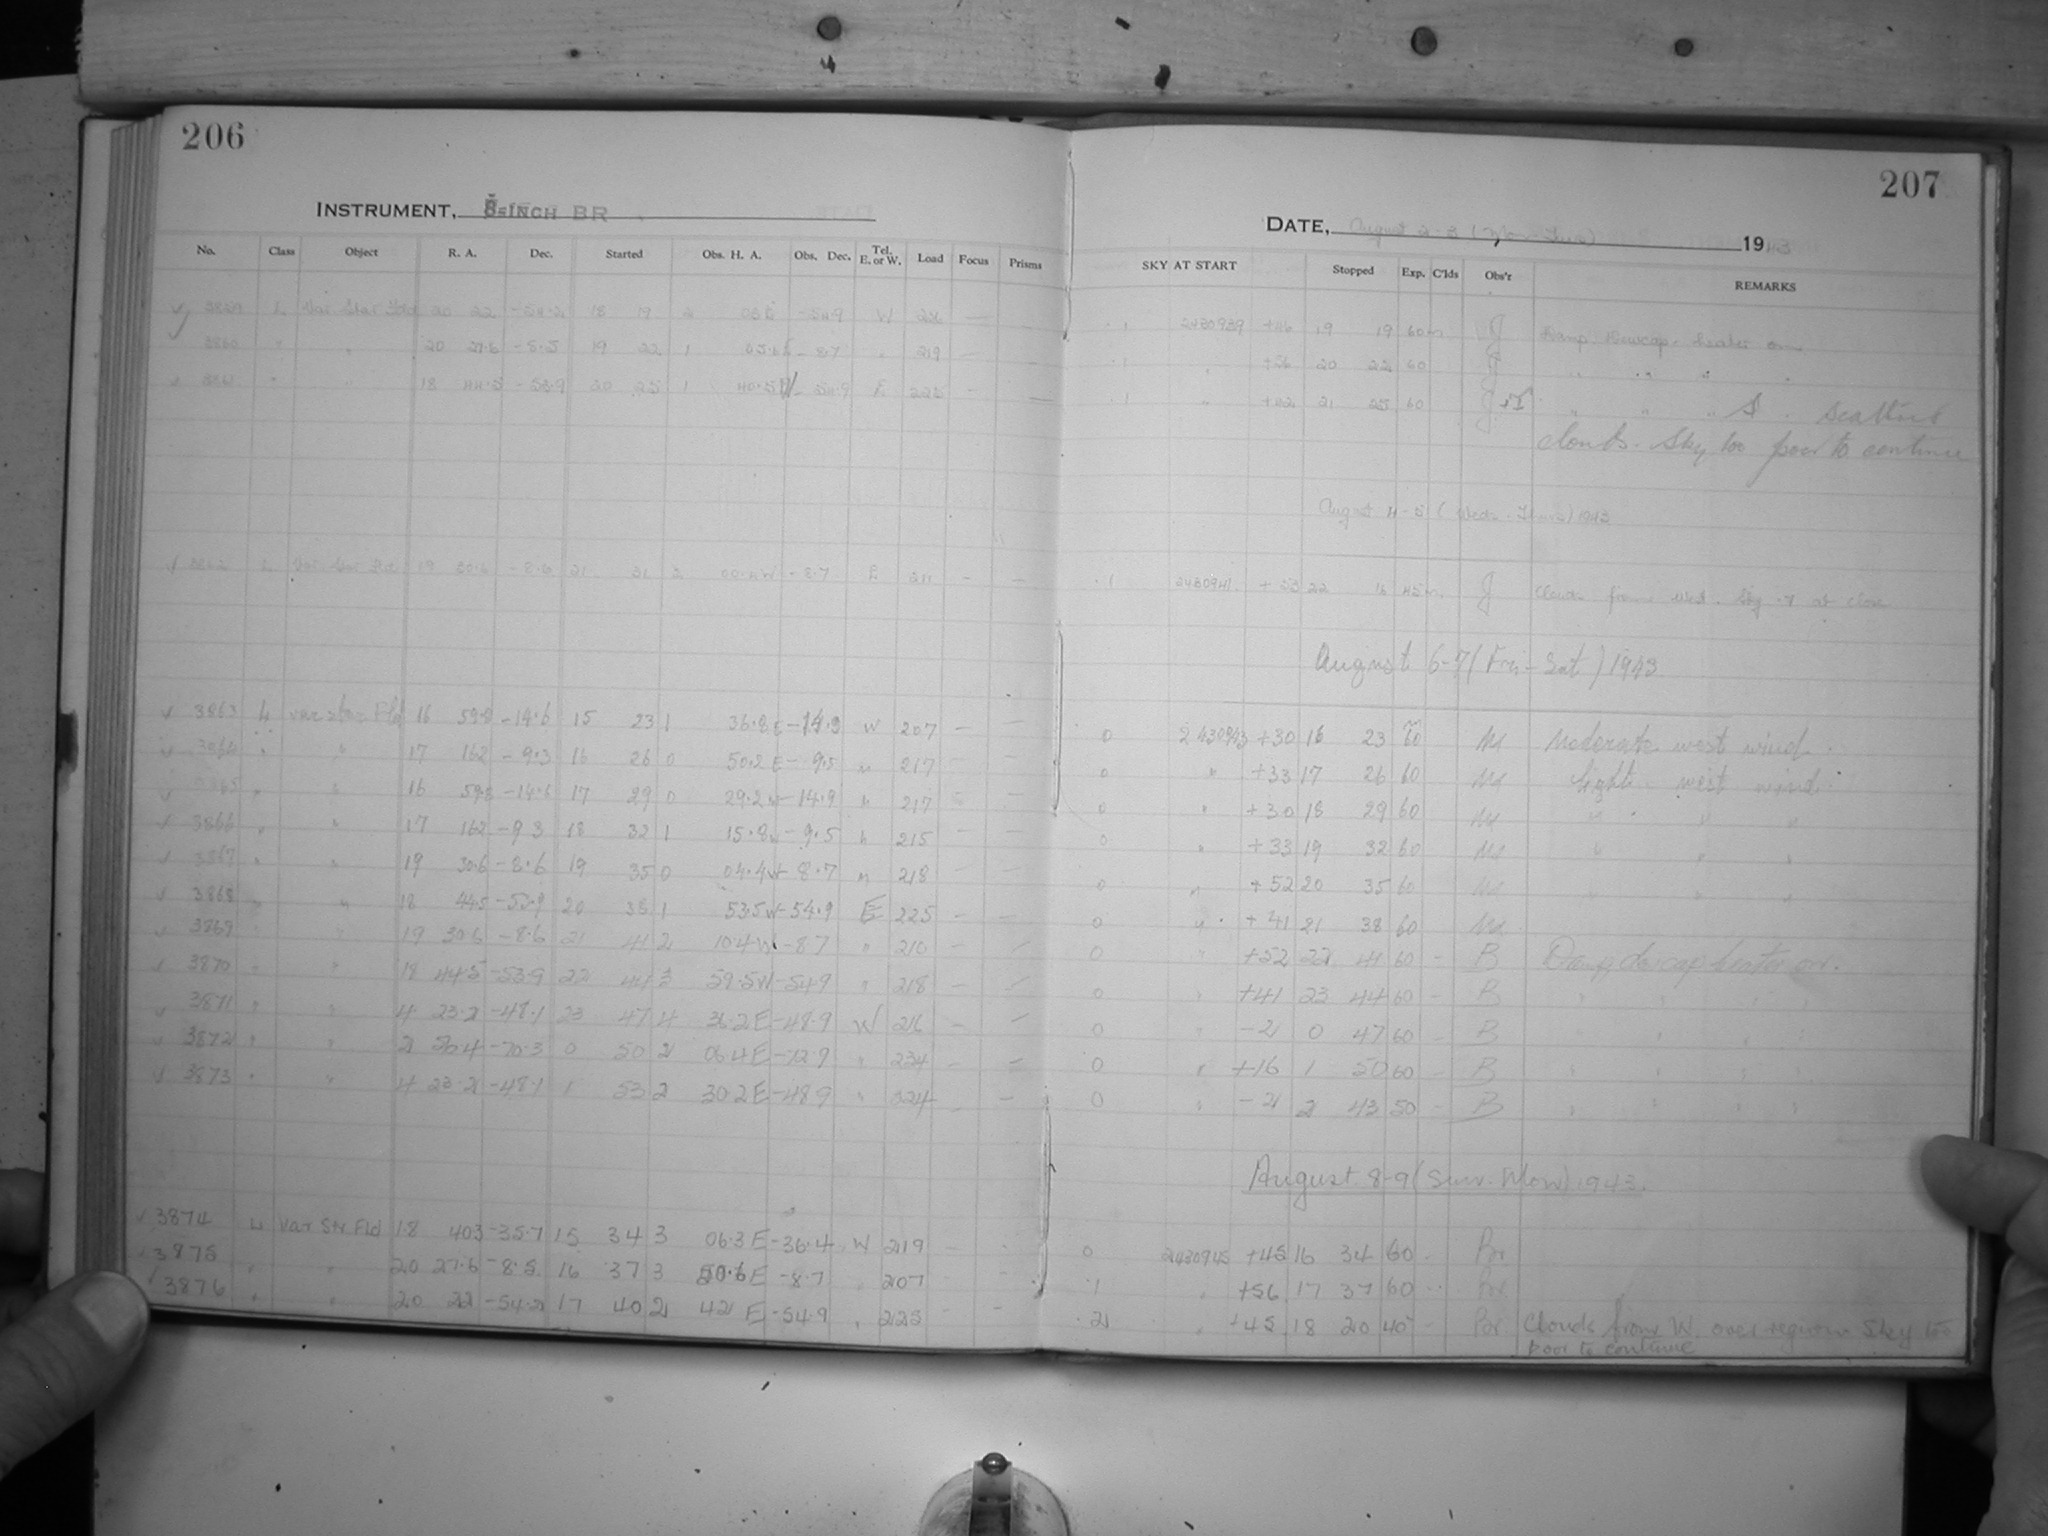 206
INSTRUMENT, 8-INCH BR
No. Class Object R. A. Dec. Started Obs. H. A. Obs. Dec. Tel. E. or W. Load Focus Prisms
3859 L Var Star Fld 20 22 -54.2 18 19 2 03 E -54.9 W 226 — —
3860 " " 20 27.6 -8.5 19 22 1 -8.7 " 219 — —
3861 " " 18 44.5 -53.9 20 25 1 40.5 W -54.9 E 225 — —
L 19 30.6 -8.6 21 31 2 -8.7 E 211 — —
✓ 3863 L Var star Fld 16 59.8 -14.6 15 23 1 36.8 E -14.9 W 207 — —
✓ 3864 " " 17 162 -9.3 16 26 0 50.2 E -9.5 " 217 — —
✓ 3865 " " 16 59.8 -14.6 17 29 0 29.2 W -14.9 " 217 —
✓ 3866 " " 17 162 -9 3 18 32 1 15.8 W -9.5 " 215 — —
✓ 3867 " " 19 30.6 -8.6 19 35 0 04.4 W -8.7 " 218 — —
✓ 3868 " " 18 44.5 -53.9 20 38 1 53.5 W -54.9 E 225 — —
✓ 3869 " " 19 30.6 -8.6 21 41 2 10.4 W -8.7 " 210 — —
✓ 3870 " " 18 44.5 -53.9 22 44 3 59.5 W -54.9 " 218 — —
✓ 3871 " " 4 23.2 -48.1 23 47 4 36.2 E -48.9 W 216 — —
✓ 3872 " " 2 -70.3 0 50 2 06.4 E " 234 — —
✓ 3873 " " 4 23.2 -48.1 1 53 2 30.2 E -48.9 " — —
✓ 3874 L Var Str Fld 18 403 -35.7 15 34 3 06.3 E -36.4 W 219 —
✓ 3875 " " 20 27.6 -8.5 16 37 3 50.6 E -8.7 " 207 —
✓ 3876 " " 20 22 -54.2 17 40 2 42 E -54.9 " 225 — —
207
DATE, August 2-3 (Mon-Tues) 1943
SKY AT START Stopped Exp. C'lds Obs'r REMARKS
.1 2430939 +46 19 19 60m J Damp. Dewcap heater on
.1 " +56 20 22 60 J " " " "
.1 " +42 21 25 60 J+I " " " Scattered
clouds. Sky too poor to continue
August 4-5 (Wed-Thurs) 1943
.1 2430941 22 16 45m J Clouds from West. Sky .7 at close
August 6-7 (Fri-Sat) 1943
0 2430943 +30 16 23 60 Moderate west wind.
0 " +33 17 26 60 Light west wind
0 " +30 18 29 60 " " "
0 " +33 19 32 60 " " "
0 " +52 20 35 60 " " "
0 " +41 21 38 60
0 " +52 22 41 60 — B Damp dewcap heater on.
0 " +41 23 44 60 — B " " " "
0 " -2 0 47 60 B " " " "
0 " +16 1 50 60 B " " " "
0 " -2 2 43 50 — B " " " "
August 8-9 (Sun-Mon) 1943.
0 2430945 +45 16 34 60 Br
.1 " +56 17 37 60 Br
.2 " +45 18 20 40 — Br Clouds from W. over region Sky too
poor to continue